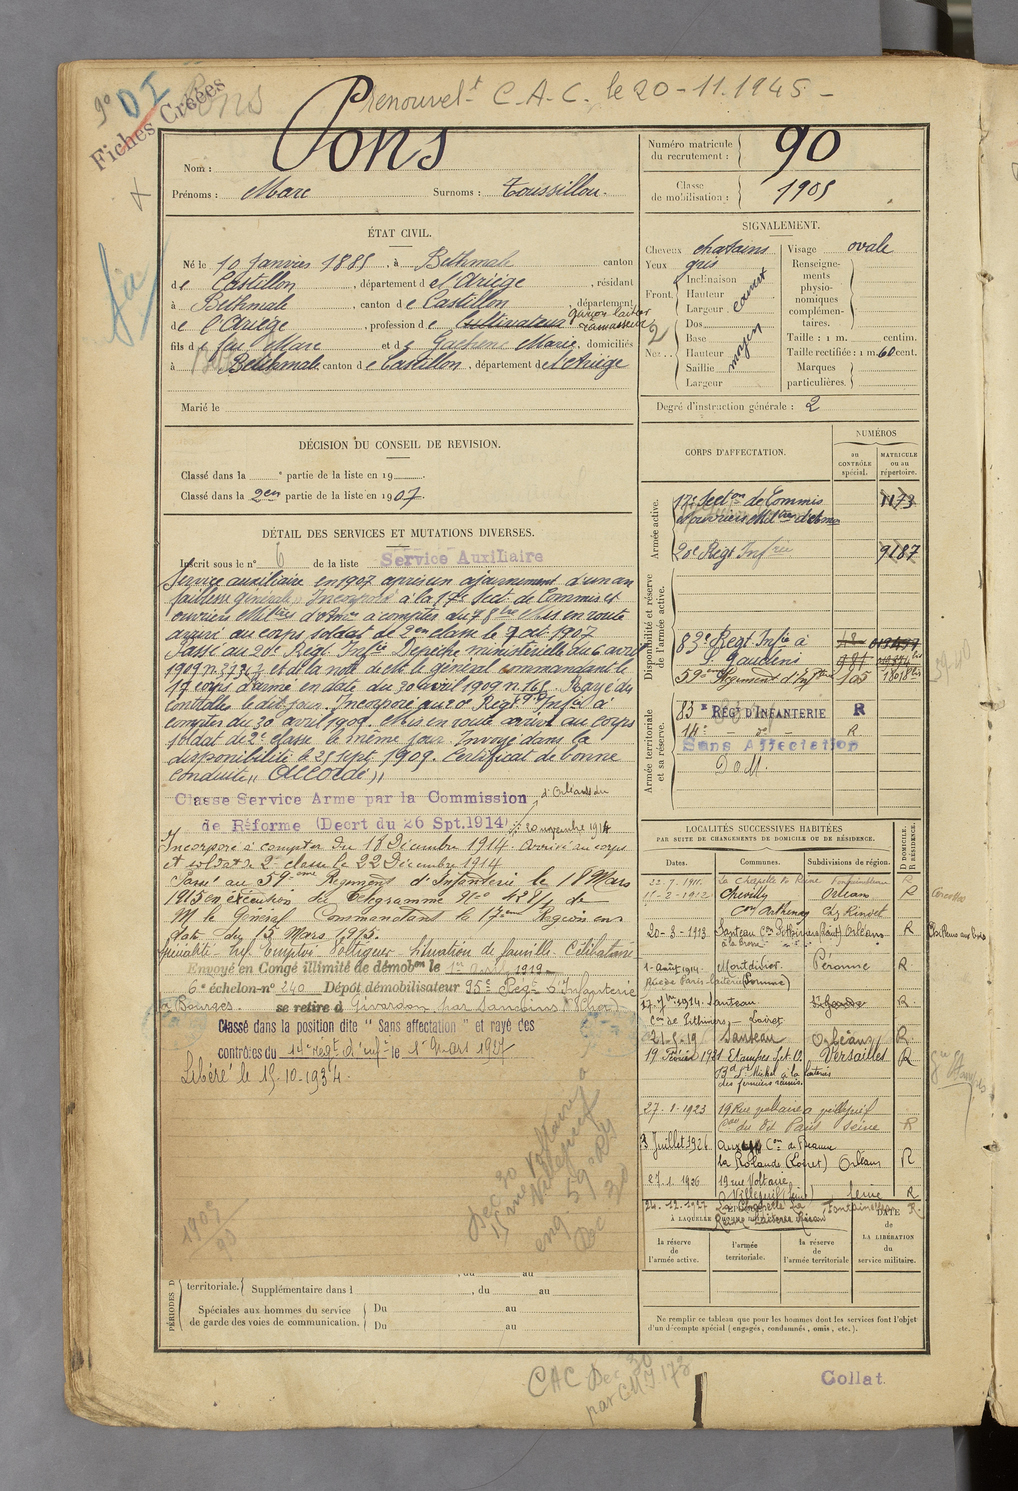 9° DI
Fiches Créées
Pons
Renouvelt C.A.C. le 20-11.1945-
Nom : Pons
Prénoms : Marc Surnoms : Toussillou.
Numéro matricule du recrutement : 90
Classe de mobilisation : 1905
ÉTAT CIVIL.
Né le 10 Janvier 1885, à Bethmale canton
de Castillon, département de l'Ariège, résidant
à Bethmale, canton de Castillon, département
de l'Ariège, profession de Cultivateur garçon laitier ramasseur
fils de feu Marc et de Marie domiciliés
à Bethmale canton de Castillon, département de l'Ariège
Marié le
SIGNALEMENT.
Cheveux chatains
Yeux gris
Front.
Inclinaison
Hauteur
Largeur
Nez
Dos
Base
Hauteur
Saillie
Largeur
moyen
Visage ovale
Renseignements physionomiques complémentaires.
Taille : 1 m. centim.
Taille rectifiée : 1 m. 60 cent.
Marques particulières.
Degré d'instruction générale : 2
DÉCISION DU CONSEIL DE REVISION.
Classé dans la e partie de la liste en 19
Classé dans la 2en partie de la liste en 1907.
DÉTAIL DES SERVICES ET MUTATIONS DIVERSES.
Inscrit sous le n° 6 de la liste Service Auxiliaire
Service auxiliaire en 1907 après un ajournement d'un an
faiblesse générale. Incorporé à la 17e Sect. de Commis et
ouvriers Milres d'Admon à compter du 7 8bre Mis en route
arrivé au corps soldat de 2e classe le 7 oct. 1907
Passé au 20e Régt Infie Dépêche ministérielle du 6 avril
1909 n° et à la note de Mr le général commandant le
17 corps d'armée en date du 20 avril 1909 n. 165. Rayé des
contrôles le dit jour. Incorporé au 20e Régt d'Infie à
compter du 30 avril 1909. Mis en route arrivé au corps
soldat de 2e classe le même jour. Envoyé dans la
disponibilité le 25 sept 1909. Certificat de bonne
conduite "Accordé"
Classe Service Armé par la Commission d'Orléans du
de Réforme (Decrt du 26 Spt.1914) 20 novembre 1914
Incorporé à compter du 18 Décembre 1914. Arrivé au corps
et soldat de 2e classe le 22 Décembre 1914
Passé au 59ème Régiment d'Infanterie le 18 Mars
1915 en exécution du télégramme N° 428 de
Mr le Général Commandant la 17ème Région en
date du 15 Mars 1915.
Spécialité Inf. Emploi Voltigeur Situation de famille Célibataire
Envoyé en Congé illimité de démobon le 1er Avril 1919
6e échelon-n° 240 Dépôt démobilisateur 95e Régt d'Infanterie
à Bourges. se retire à Givardon par Sancoins (Cher)
Classé dans la position dite "Sans affectation" et rayé des
contrôles du 14e régt d'infie le 1er Mars 1927
Libéré le 15-10-1934.
1905
90
CORPS D'AFFECTATION.
NUMÉROS
au CONTRÔLE spécial.
MATRICULE ou au répertoire.
Armée active.
17e Secton de Commis
et ouvriers Milres d'Admon 1173
20e Régt Infrie 9187
Disponibilité et réserve de l'armée active.
83e Régt Infie à
St Gaudens
59ème Régiment d'Inftrie 105
Armée territoriale et sa réserve.
83e RÉGt D'INFANTERIE R
14e - do - R
Sans Affectation
D.O.M.
LOCALITÉS SUCCESSIVES HABITÉES
PAR SUITE DE CHANGEMENTS DE DOMICILE OU DE RÉSIDENCE.
Dates. Communes. Subdivisions de région. D DOMICILE. R RÉSIDENCE.
22-7-1911. La Chapelle la Reine Fontainebleau R
11-2-1912 Chevilly Orléans R
Con Arthenay Chez Rinvet
20-3-1913 Santeau Con Pithiviers (Loiret) Orléans R
1-Août 1914 Montdidier Péronne R
Rue de Paris-laiterie (Somme)
17-7bre 1914 Santeau R
Con de Pithiviers - Loiret
21-5-19 Santeau Orléans R
19 Février 1921 Etampes S.et O. Versailles R
Bd St Michel à la laiterie
des fermiers réunis.
27-1-1923 19 Rue Voltaire à Villejuif
Seine R
3 Juillet 1926 Auxy Con de Beaune
la Rolande (Loiret) Orléans R
27-1-1926 19 rue Voltaire
à Villejuif (Seine) Seine R
24-12-1927 La Chapelle La Reine Fontainebleau R
À LAQUELLE
la réserve de l'armée active.
l'armée territoriale.
la réserve de l'armée territoriale
DATE de LA LIBÉRATION du service militaire.
PÉRIODES D
territoriale. Supplémentaire dans l , du au
Spéciales aux hommes du service de garde des voies de communication.
Du au
Du au
Ne remplir ce tableau que pour les hommes dont les services font l'objet
d'un décompte spécial (engagés, condamnés, omis, etc.).
CAC Dec 30
par CM.J 173
Collat.